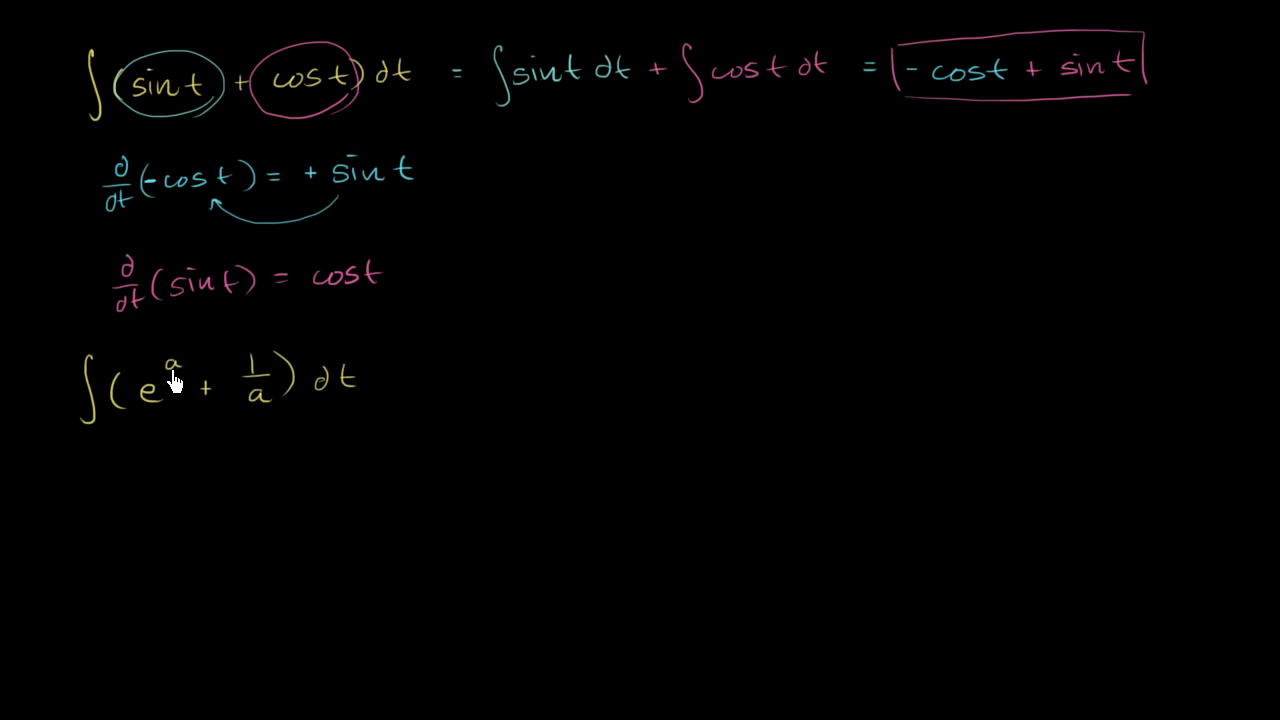 ∫(sin t + cos t) dt = ∫sin t dt + ∫cos t dt = - cos t + sin t
d/dt(-cos t) = + sin t
d/dt(sin t) = cos t
∫(e^a + 1/a) dt